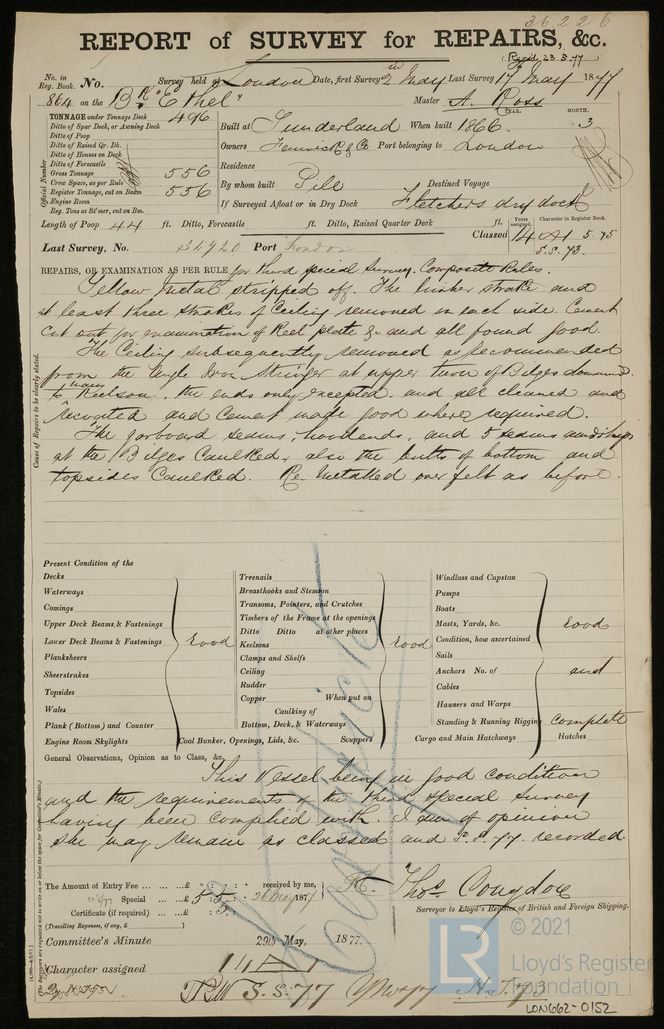 36226
REPORT of SURVEY for REPAIRS, &c.
No. in Reg. Book. No. Survey held at London Date, first Survey 2nd May Last Survey 17 May 1877
864 on the Bk "Ethel" Master A. Ross
TONNAGE under Tonnage Deck 496
Ditto of Spar Deck, or Awning Deck
Ditto of Poop
Ditto of Raised Qr. Dk.
Ditto of Houses on Deck
Ditto of Forecastle
Gross Tonnage 556
Crew Space, as per Rule
Register Tonnage, cut on Beam 556
Engine Room
Reg. Tons as St'mer, cut on Bm.
Official Number
Built at Sunderland When built 1866 YEAR. MONTH. 3
Owners Fenwick & Co Port belonging to London
Residence
By whom built Pile Destined Voyage
If Surveyed Afloat or in Dry Dock Fletchers dry dock
Length of Poop 44 ft. Ditto, Forecastle ft. Ditto, Raised Quarter Deck ft.
Years assigned. Character in Register Book.
Classed 14 A1 5.75
S.S. 73.
Last Survey, No. 34920 Port London
REPAIRS, OR EXAMINATION AS PER RULE for third special Survey. Composite Rules.
Yellow metal stripped off. The limber strake and
at least three strakes of Ceiling removed on each side. Cement
cut out for examination of Keel plate & and all found good.
The Ceiling subsequently removed as recommended
from the Angle Iron Stringer at upper turn of Bilges downwd.
to Keelson, the ends only excepted and all cleaned and
recoated and Cement made good where required.
The garboard seams, hoodends, and 5 seams
at the Bilges Caulked, also the butts of bottom and
topsides Caulked. Re-metalled over felt as before.
Cause of Repairs to be clearly stated.
Present Condition of the
Decks
Waterways
Comings
Upper Deck Beams & Fastenings
Lower Deck Beams & Fastenings Good
Planksheers
Sheerstrakes
Topsides
Wales
Plank (Bottom) and Counter
Engine Room Skylights
Treenails
Breasthooks and Stemson
Transoms, Pointers, and Crutches
Timbers of the Frame at the openings
Ditto Ditto at other places
Keelsons Good
Clamps and Shelfs
Ceiling
Rudder
Copper When put on
Caulking of
Bottom, Deck, & Waterways
Coal Bunker, Openings, Lids, &c. Scuppers
Windlass and Capstan
Pumps
Boats
Masts, Yards, &c. Good
Condition, how ascertained
Sails
Anchors No. of and
Cables
Hawsers and Warps
Standing & Running Rigging Complete
Cargo and Main Hatchways Hatches
General Observations, Opinion as to Class, &c.
This Vessel being in good condition
and the requirements of the third special survey
having been complied with. I am of opinion
she may remain as classed and S.S. 77. recorded.
The Amount of Entry Fee £ : : received by me,
Special £ 5 : 5 : 187
Certificate (if required) £ : 5 :
(Travelling Expenses, if any, £ )
Thos. Congdon
Surveyor to Lloyd's Register of British and Foreign Shipping.
Committee's Minute 29th May, 1877.
Character assigned 14 A 1
S.S. 77
© 2021
LR
Lloyd's Register
Foundation
LON662-0152